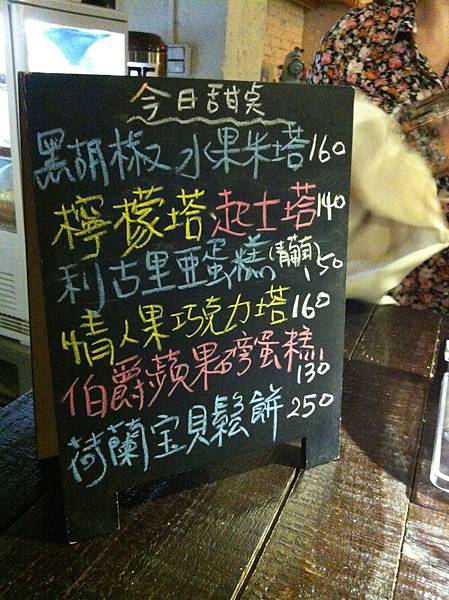 今日甜桌
黑胡椒水果朱塔160
檸檬塔.起士塔140
利古里亞蛋糕(青葡萄)150
情人果巧克力塔160
伯爵蘋果磅蛋糕130
荷蘭宝貝鬆餅250